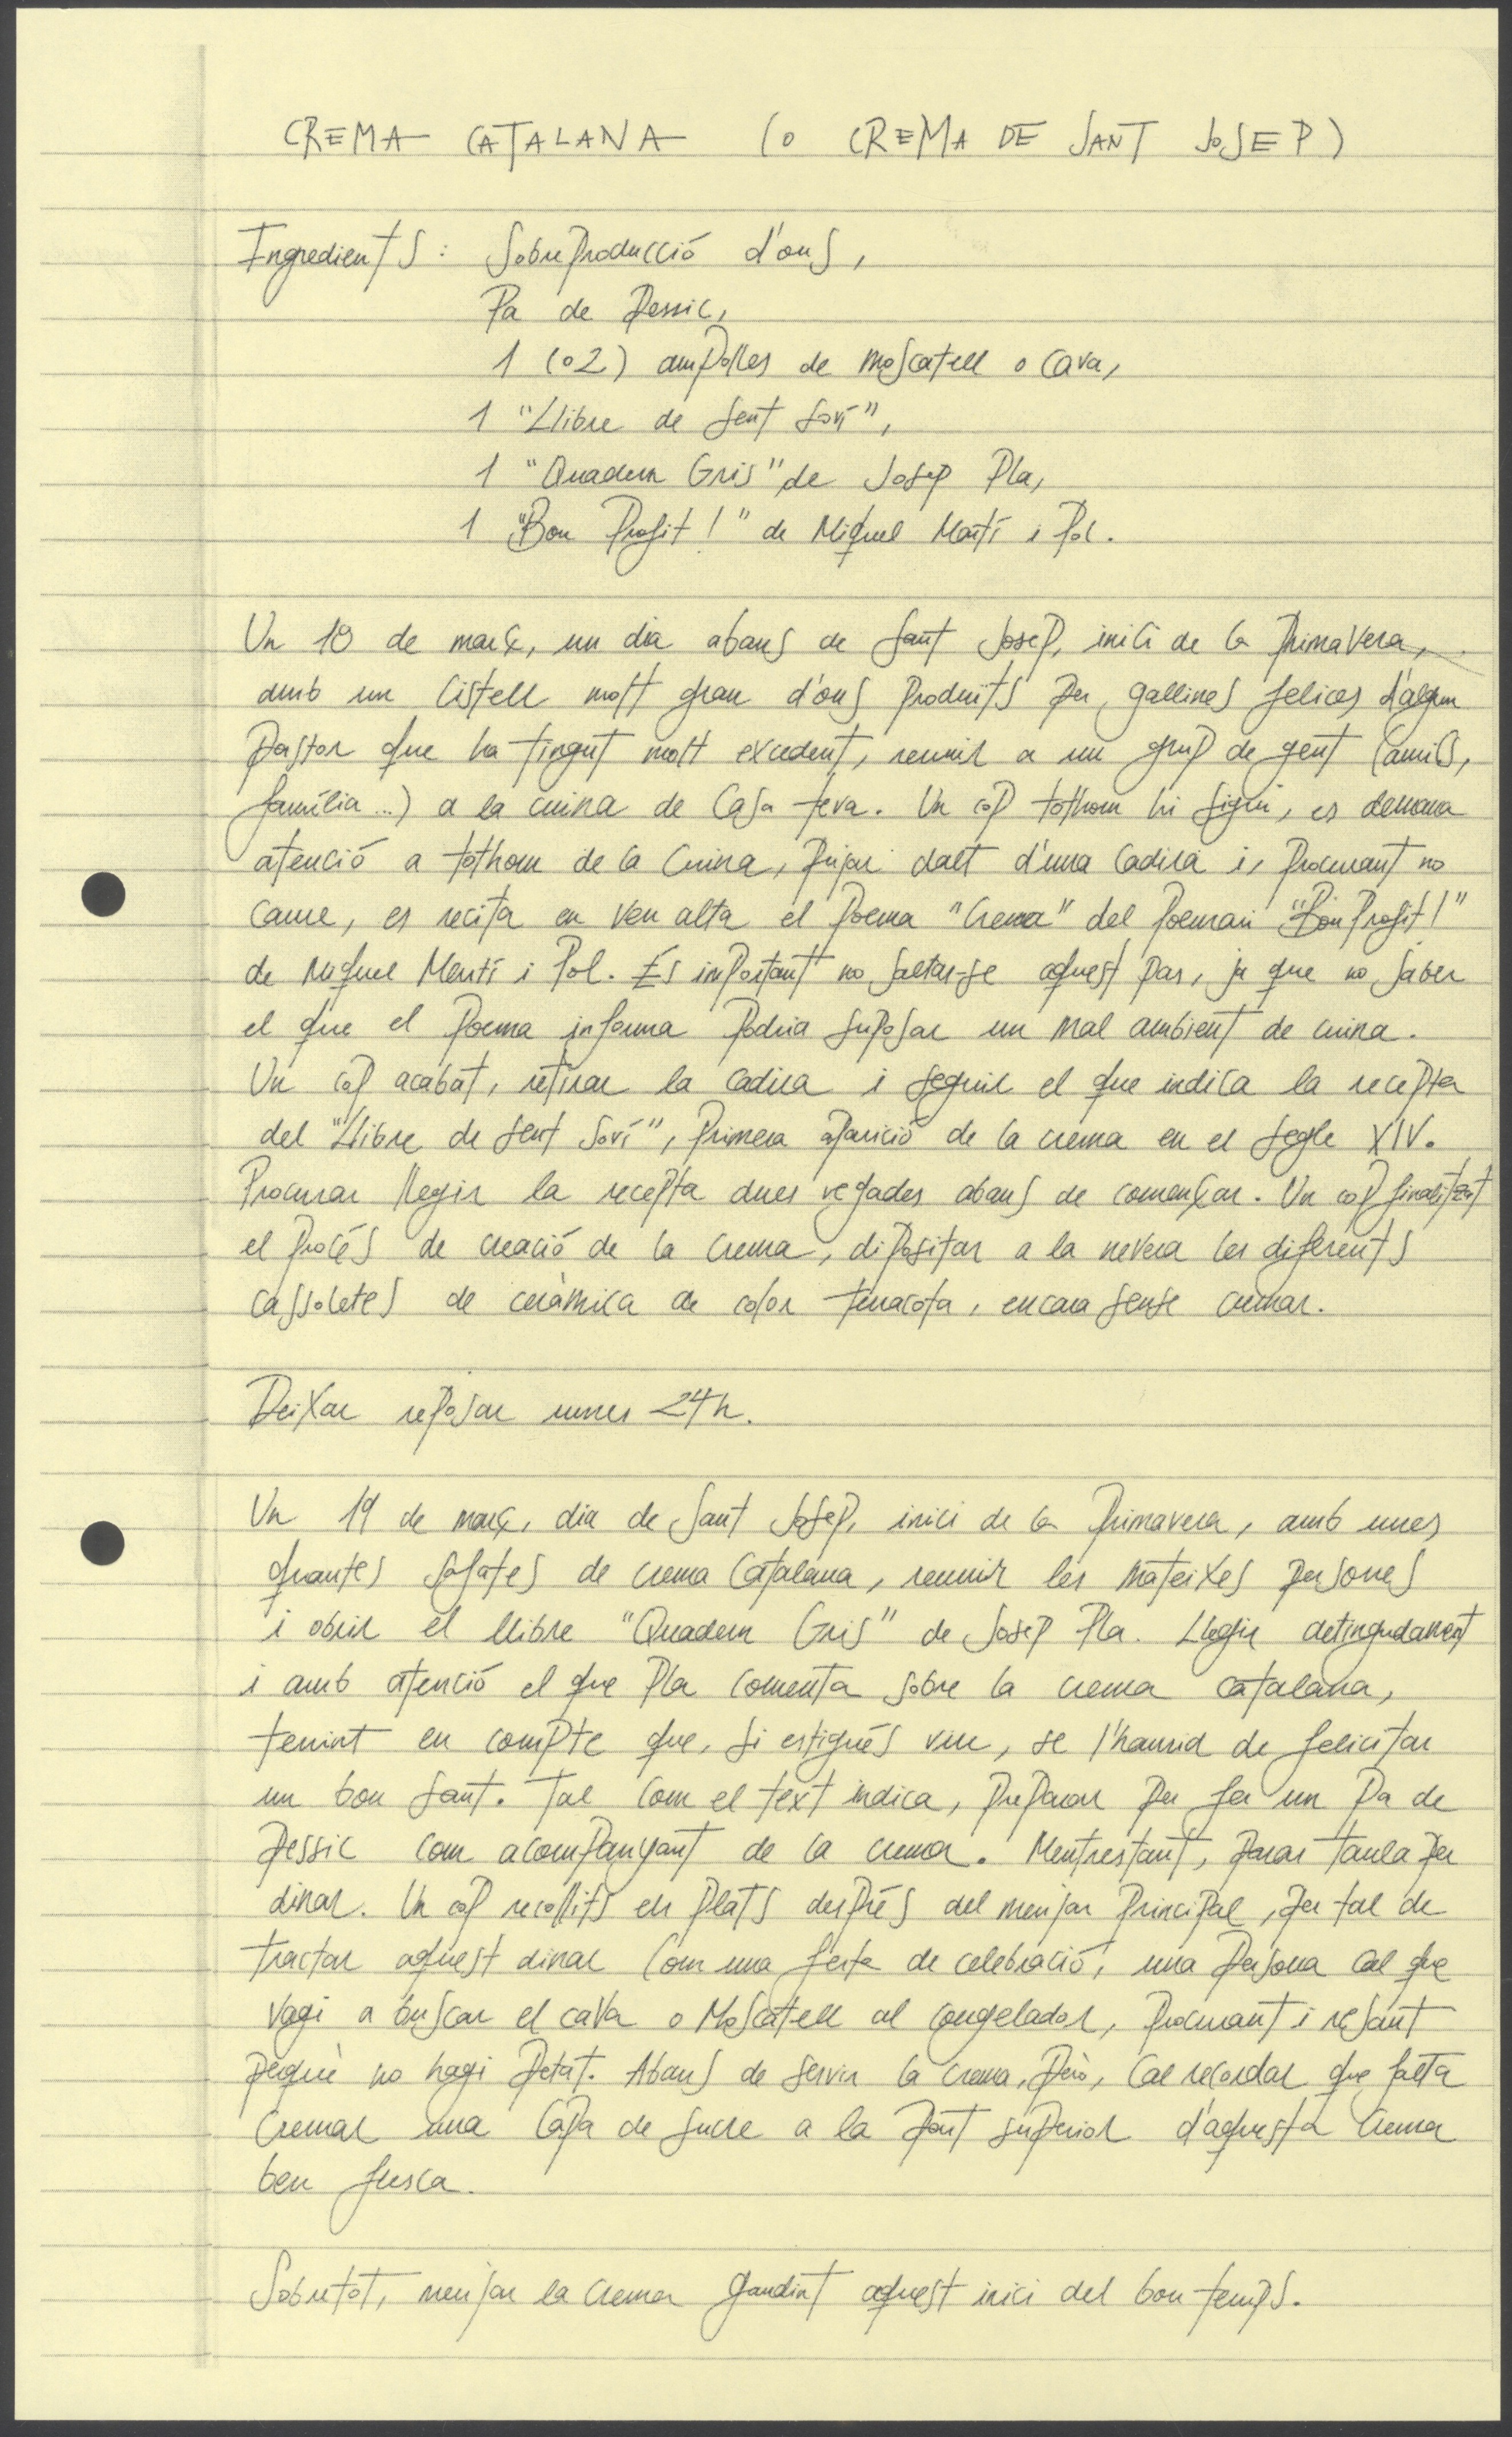 CREMA CATALANA (O CREMA DE SANT JOSEP)
Ingredients: Sobreproducció d'ous,
Pa de pessic,
1 (o 2) ampolles de moscatell o cava,
1 "Llibre de Sent Soví",
1 "Quadern Gris" de Josep Pla,
1 "Bon Profit!" de Miquel Martí i Pol.
Un 18 de març, un dia abans de Sant Josep, inici de la primavera,
amb un cistell molt gran d'ous produïts per gallines felices d'algun
pastor que ha tingut molt excedent, reunir a un grup de gent (amics,
família...) a la cuina de casa teva. Un cop tothom hi sigui, es demana
atenció a tothom de la cuina, pujar dalt d'una cadira i, procurant no
caure, es recita en veu alta el poema "Crema" del poemari "Bon Profit!"
de Miquel Martí i Pol. És important no saltar-se aquest pas, ja que no saber
el que el poema informa podria suposar un mal ambient de cuina.
Un cop acabat, retirar la cadira i seguir el que indica la recepta
del "Llibre de Sent Soví", primera aparició de la crema en el segle XIV.
Procurar llegir la recepta dues vegades abans de començar. Un cop finalitzat
el procés de creació de la crema, dipositar a la nevera les diferents
cassoletes de ceràmica de color terracota, encara sense cremar.
Deixar reposar unes 24h.
Un 19 de març, dia de Sant Josep, inici de la primavera, amb unes
quantes safates de crema catalana, reunir les mateixes persones
i obrir el llibre "Quadern Gris" de Josep Pla. Llegir detingudament
i amb atenció el que Pla comenta sobre la crema catalana,
tenint en compte que, si estigués viu, se l'hauria de felicitar
un bon sant. Tal com el text indica, preparar per fer un pa de
pessic com acompanyant de la crema. Mentrestant, parar taula per
dinar. Un cop recollits els plats després del menjar principal, per tal de
tractar aquest dinar com una festa de celebració, una persona cal que
vagi a buscar el cava o Moscatell al congelador, procurant i resant
perquè no hagi petat. Abans de servir la crema, però, cal recordar que falta
cremar una capa de sucre a la part superior d'aquesta crema
ben fresca.
Sobretot, menjar la crema gaudint aquest inici del bon temps.